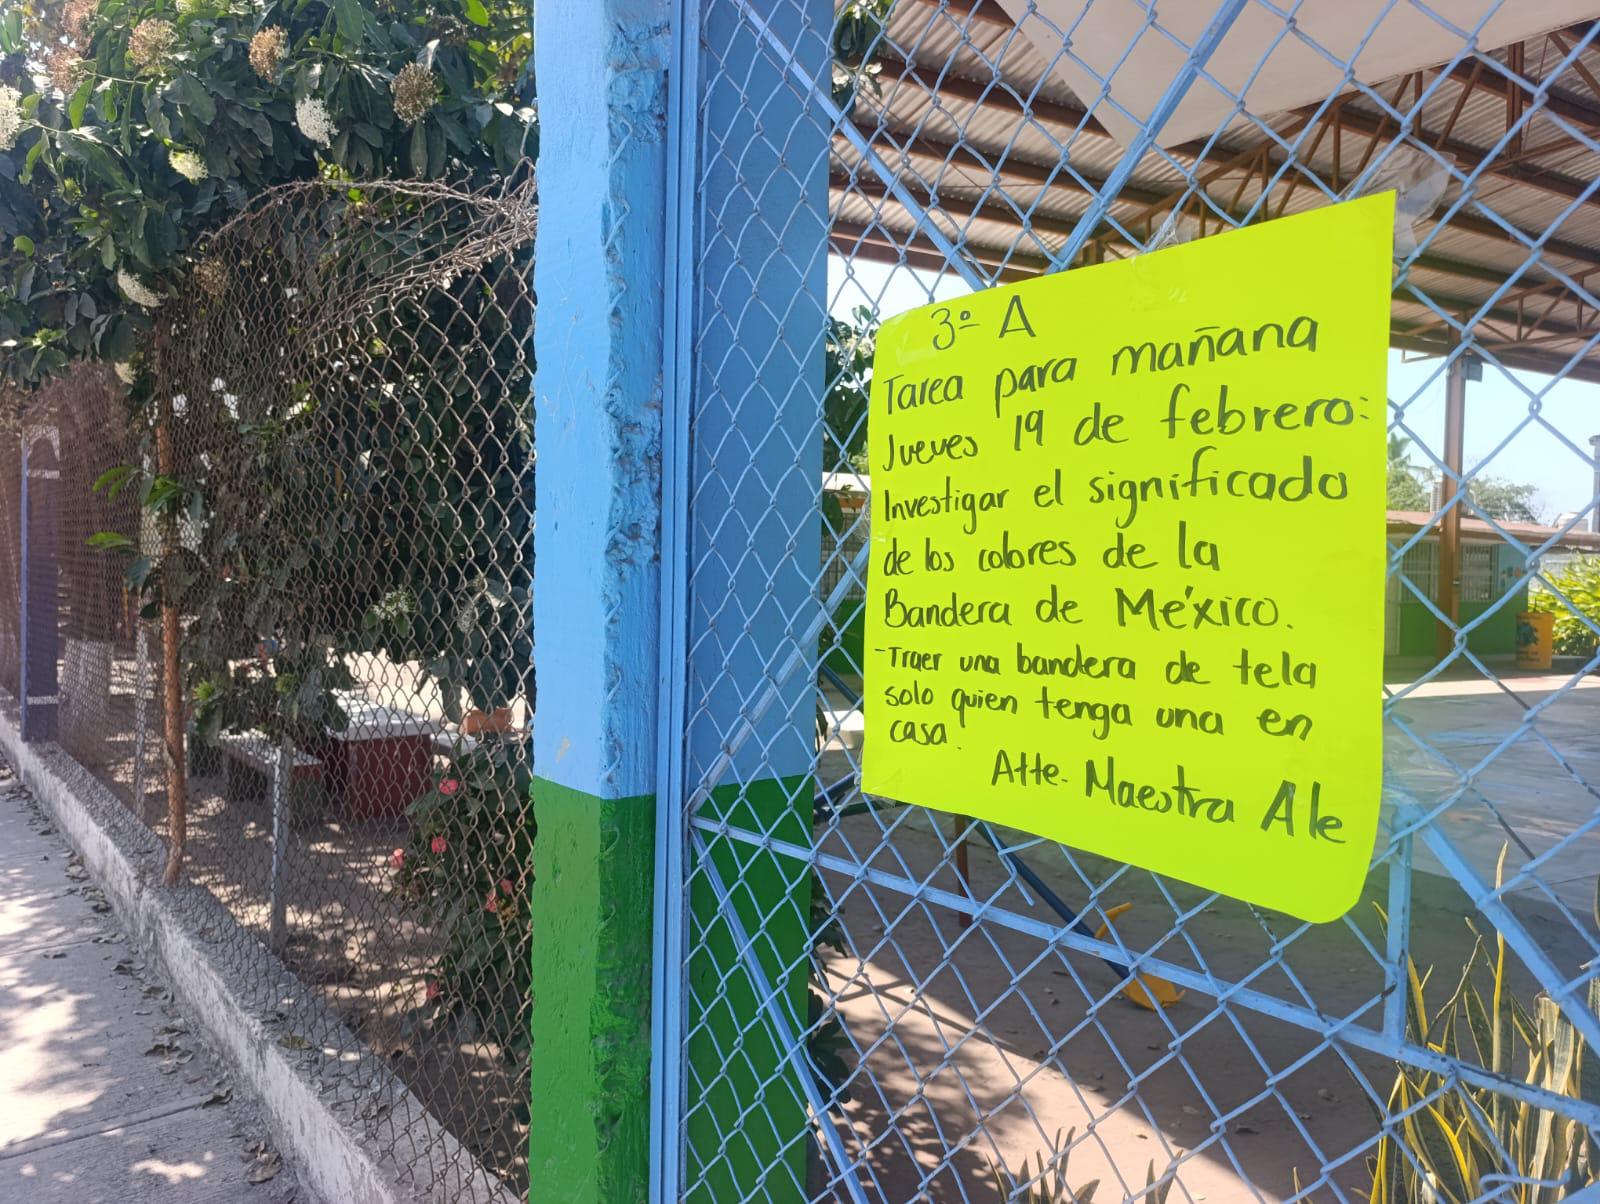 3º A
Tarea para mañana
Jueves 19 de febrero:
Investigar el significado
de los colores de la
Bandera de México.
-Traer una bandera de tela
solo quien tenga una en
casa.
Atte. Maestra Ale